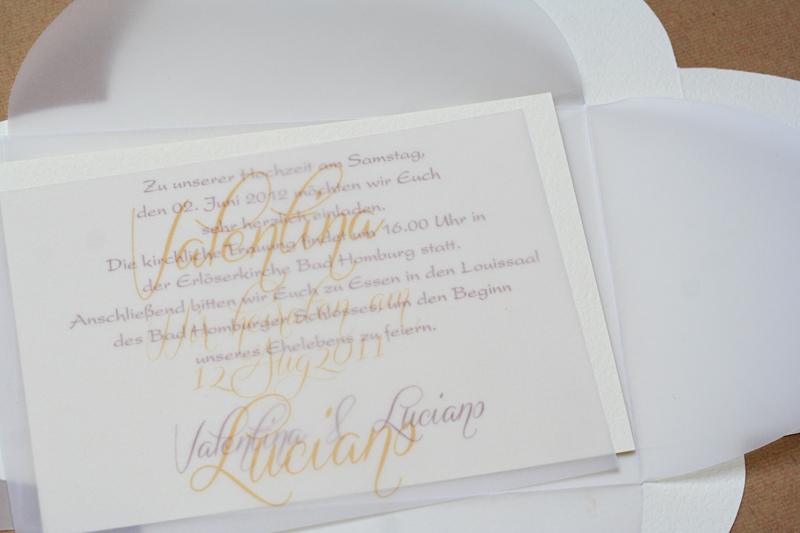 Zu unserer Hochzeit am Samstag,
den 02. Juni 2012 möchten wir Euch
sehr herzlich einladen.
Die kirchliche Trauung findet um 16.00 Uhr in
der Erlöserkirche Bad Homburg statt.
Anschließend bitten wir Euch zu Essen in den Louissaal
des Bad Homburger Schlosses, um den Beginn
unseres Ehelebens zu feiern.
Valentina & Luciano
Valentina
Wir heiraten am
12 Aug 2011
Luciano